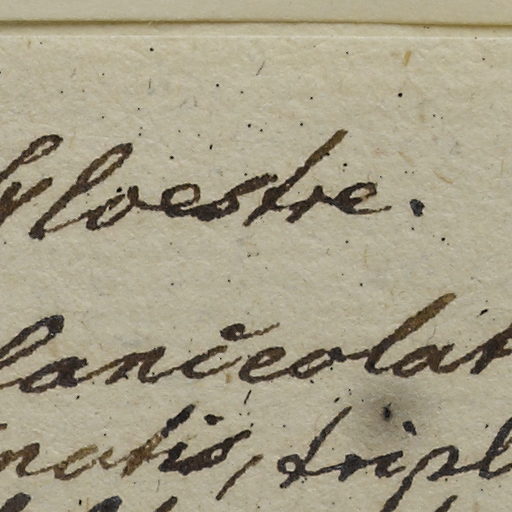 sylvestre.
lanceolat
natis, tripl